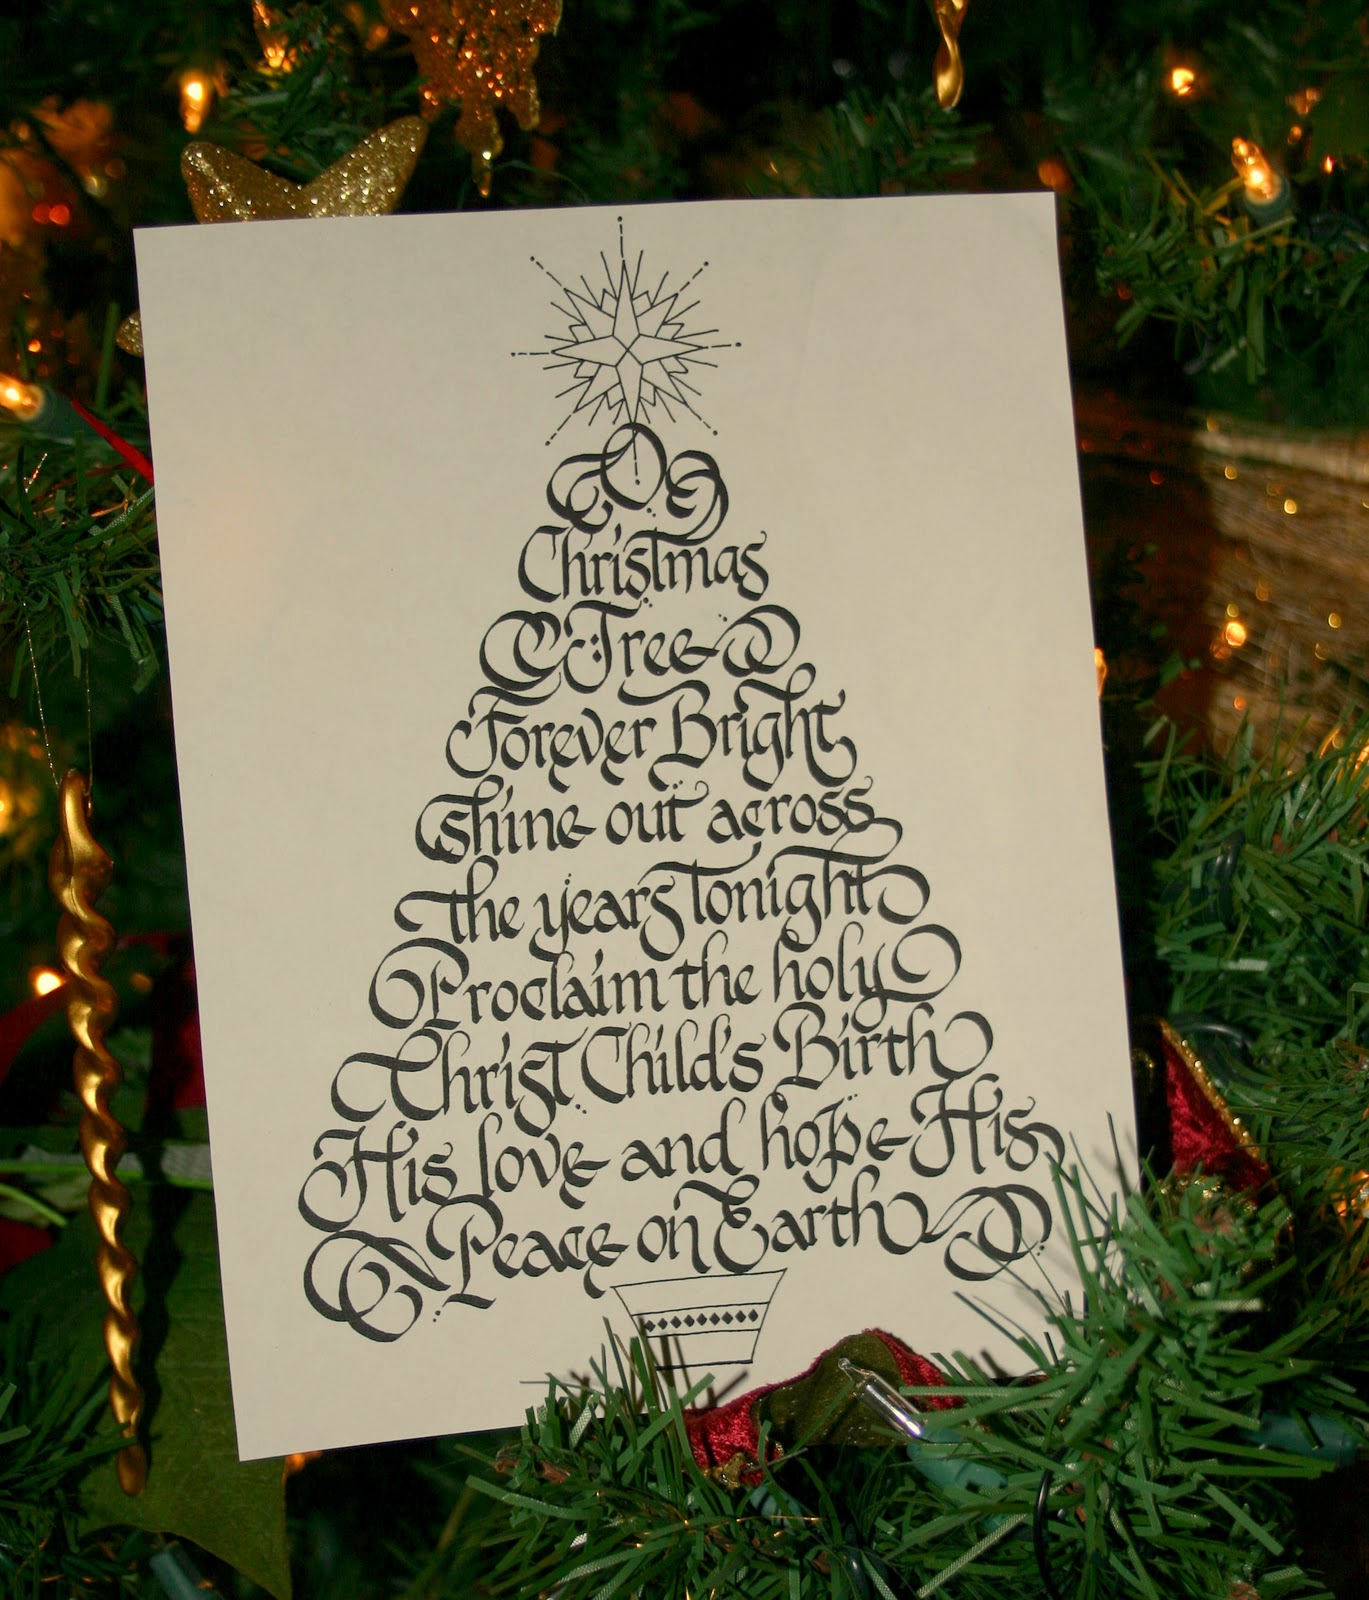 O
Christmas
Tree
Forever Bright
Shine out across
the years tonight
Proclaim the holy
Christ Child's Birth
His love and hope His
Peace on Earth